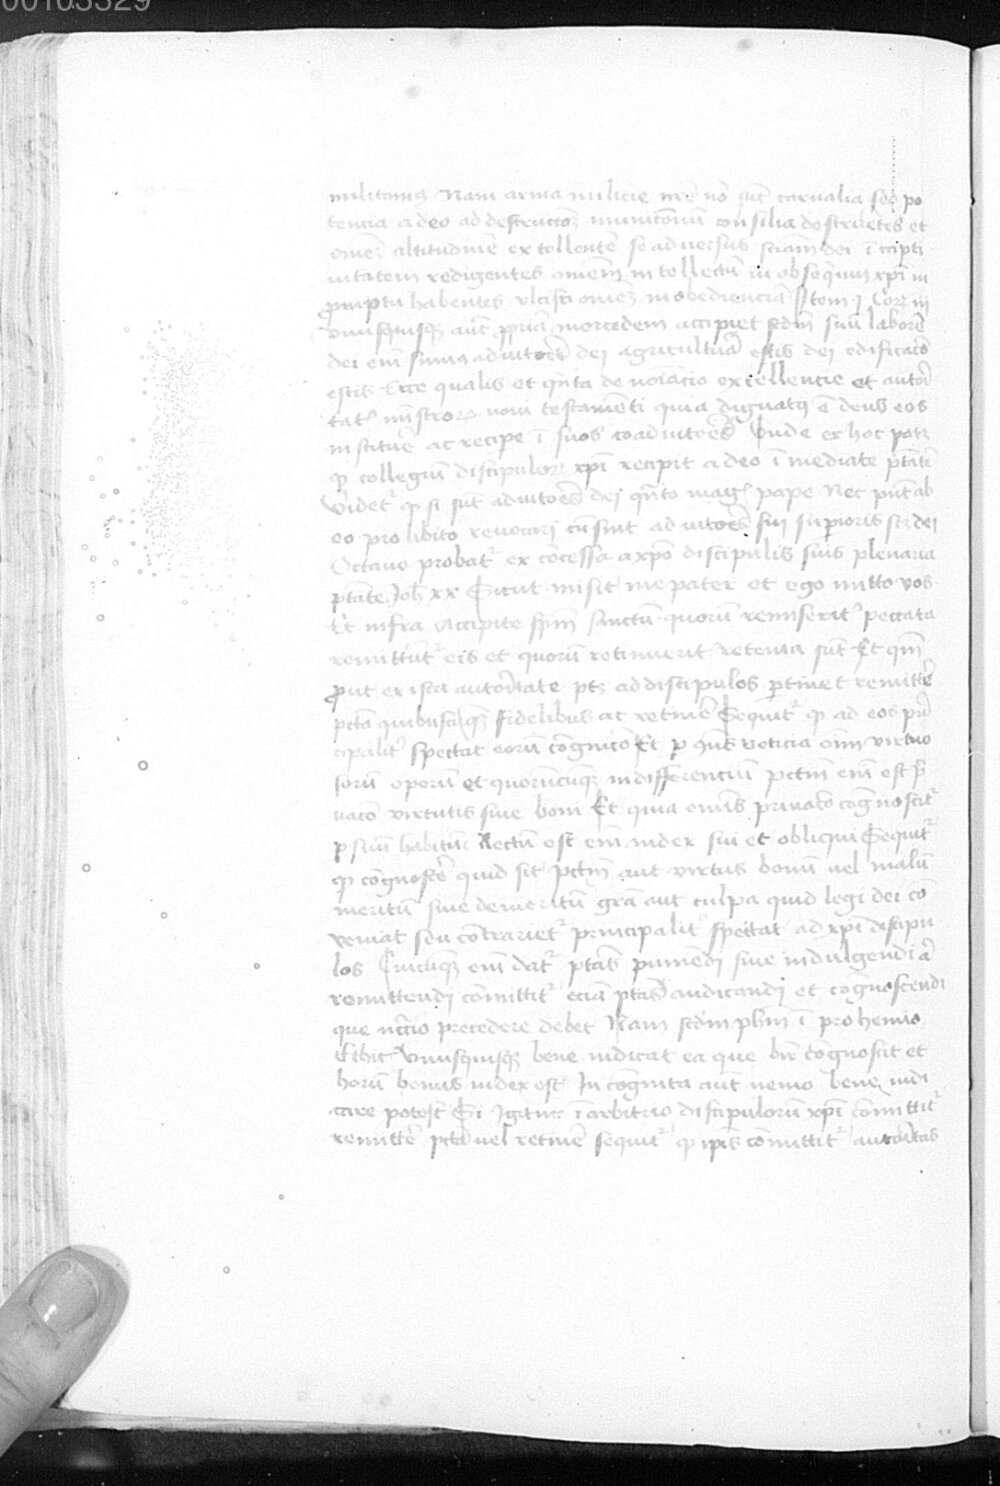 00103329
militamus Nam arma milicie nr̄e nō sūt carnalia sed po
tencia a deo ad destructōȝ municōnum consilia destruētes et
omeȝ altitudinē extollentē se adversus sciām dei ī capti
vitatem redigentes omēm intellectū in obsequium xp̄i in
promptu habentes ulcisci omēȝ inobedienciā Item j Cor iij
Unusquisqȝ aūt ppriā mercedem accipiet scdm suū laborē
dei eīm sumus adiutores dei agricultura estis dei edificacō
estis Ecce qualis et quanta denoīacio excellencie et autori
tatꝭ ministroꝝ novi testamenti quia dignatus ē deus eos
instituē ac recipe ī suos coadiutores Unde ex hoc patȝ
ꝙ collegiū discipuloꝝ xp̄i recipit a deo īmediate ptātē
Videt ꝙ si sūt adiutores dei quāto magꝭ pape Nec pn̄t ab
eo pro libito revocari cū sint adiutores sui supioris scȝ dei
Octavo probat ex concessa a xp̄o discipulis suis plenaria
ptāte Joh xx Sicut misit me pater et ego mitto vos
Et infra Accipite spm̄ sanctū quorū remiserit peccata
remittūt eis et quorū retinuerit retenta sūt Et qm̄
prout ex ista autoritate ptȝ ad discipulos ptinet remittē
pctā quibuscūqȝ fidelibus ac retinē Sequit ꝙ ad eos prin
cipalit spectat eorū cognicō Et p qn̄s noticia oīm virtuo
sorū operū et quorūcūqȝ indifferenciū pctm̄ eīm est pri
vacō virtutis sive boni Et quia omīs privacō cognoscit
p suū habitū Rectū est eīm iudex sui et obliqui Sequit
ꝙ cognoscē quid sit pctm̄ aut virtus bonū vel malū
meritū sive demeritū grā aut culpa quid legi dei cō
veniat seu contrariet principalit spectat ad xp̄i discipu
los Cuicūqȝ eīm dat ptās puniendi sive indulgendi ac
remittendi committit eciā ptās iudicandi et cognoscendi
que necc̄io precedere debet Nam scdm phm̄ ī prohemio
Ethic Unusquisqȝ bene iudicat ea que bn̄ cognoscit et
horū bonus iudex est Incognita aūt nemo bene iudi
care potest Si igitur ī arbitrio discipulorū xp̄i committit
remittē pctā vel retinē sequit ꝙ ipīs committit autoritas